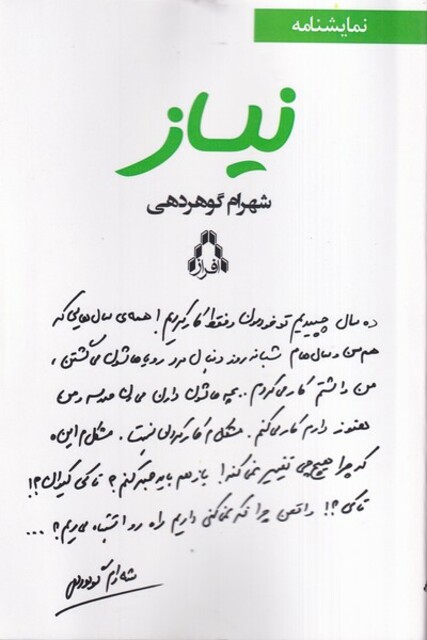 نمایشنامه
نیاز
شهرام گوهردهی
افراز
ده سال چسبیدیم تو خودمون و فقط کار کردیم! همه‌ی سال‌هایی که
هم‌سن و سال‌هام شبانه روز دنبال مرد رویاهاشون می‌گشتن،
من داشتم کار می‌کردم.. بچه‌هاشون دارن می‌رن مدرسه و من
هنوز دارم کار می‌کنم. مشکلم کار کردن نیست. مشکلم اینه
که چرا هیچی تغییر نمی‌کنه! بازهم باید صبر کنم؟ تا کی کیوان؟!
تا کی؟! واقعن چرا فکر نمی‌کنی داریم راه رو اشتباه می‌ریم؟ ...
شهرام گوهردهی